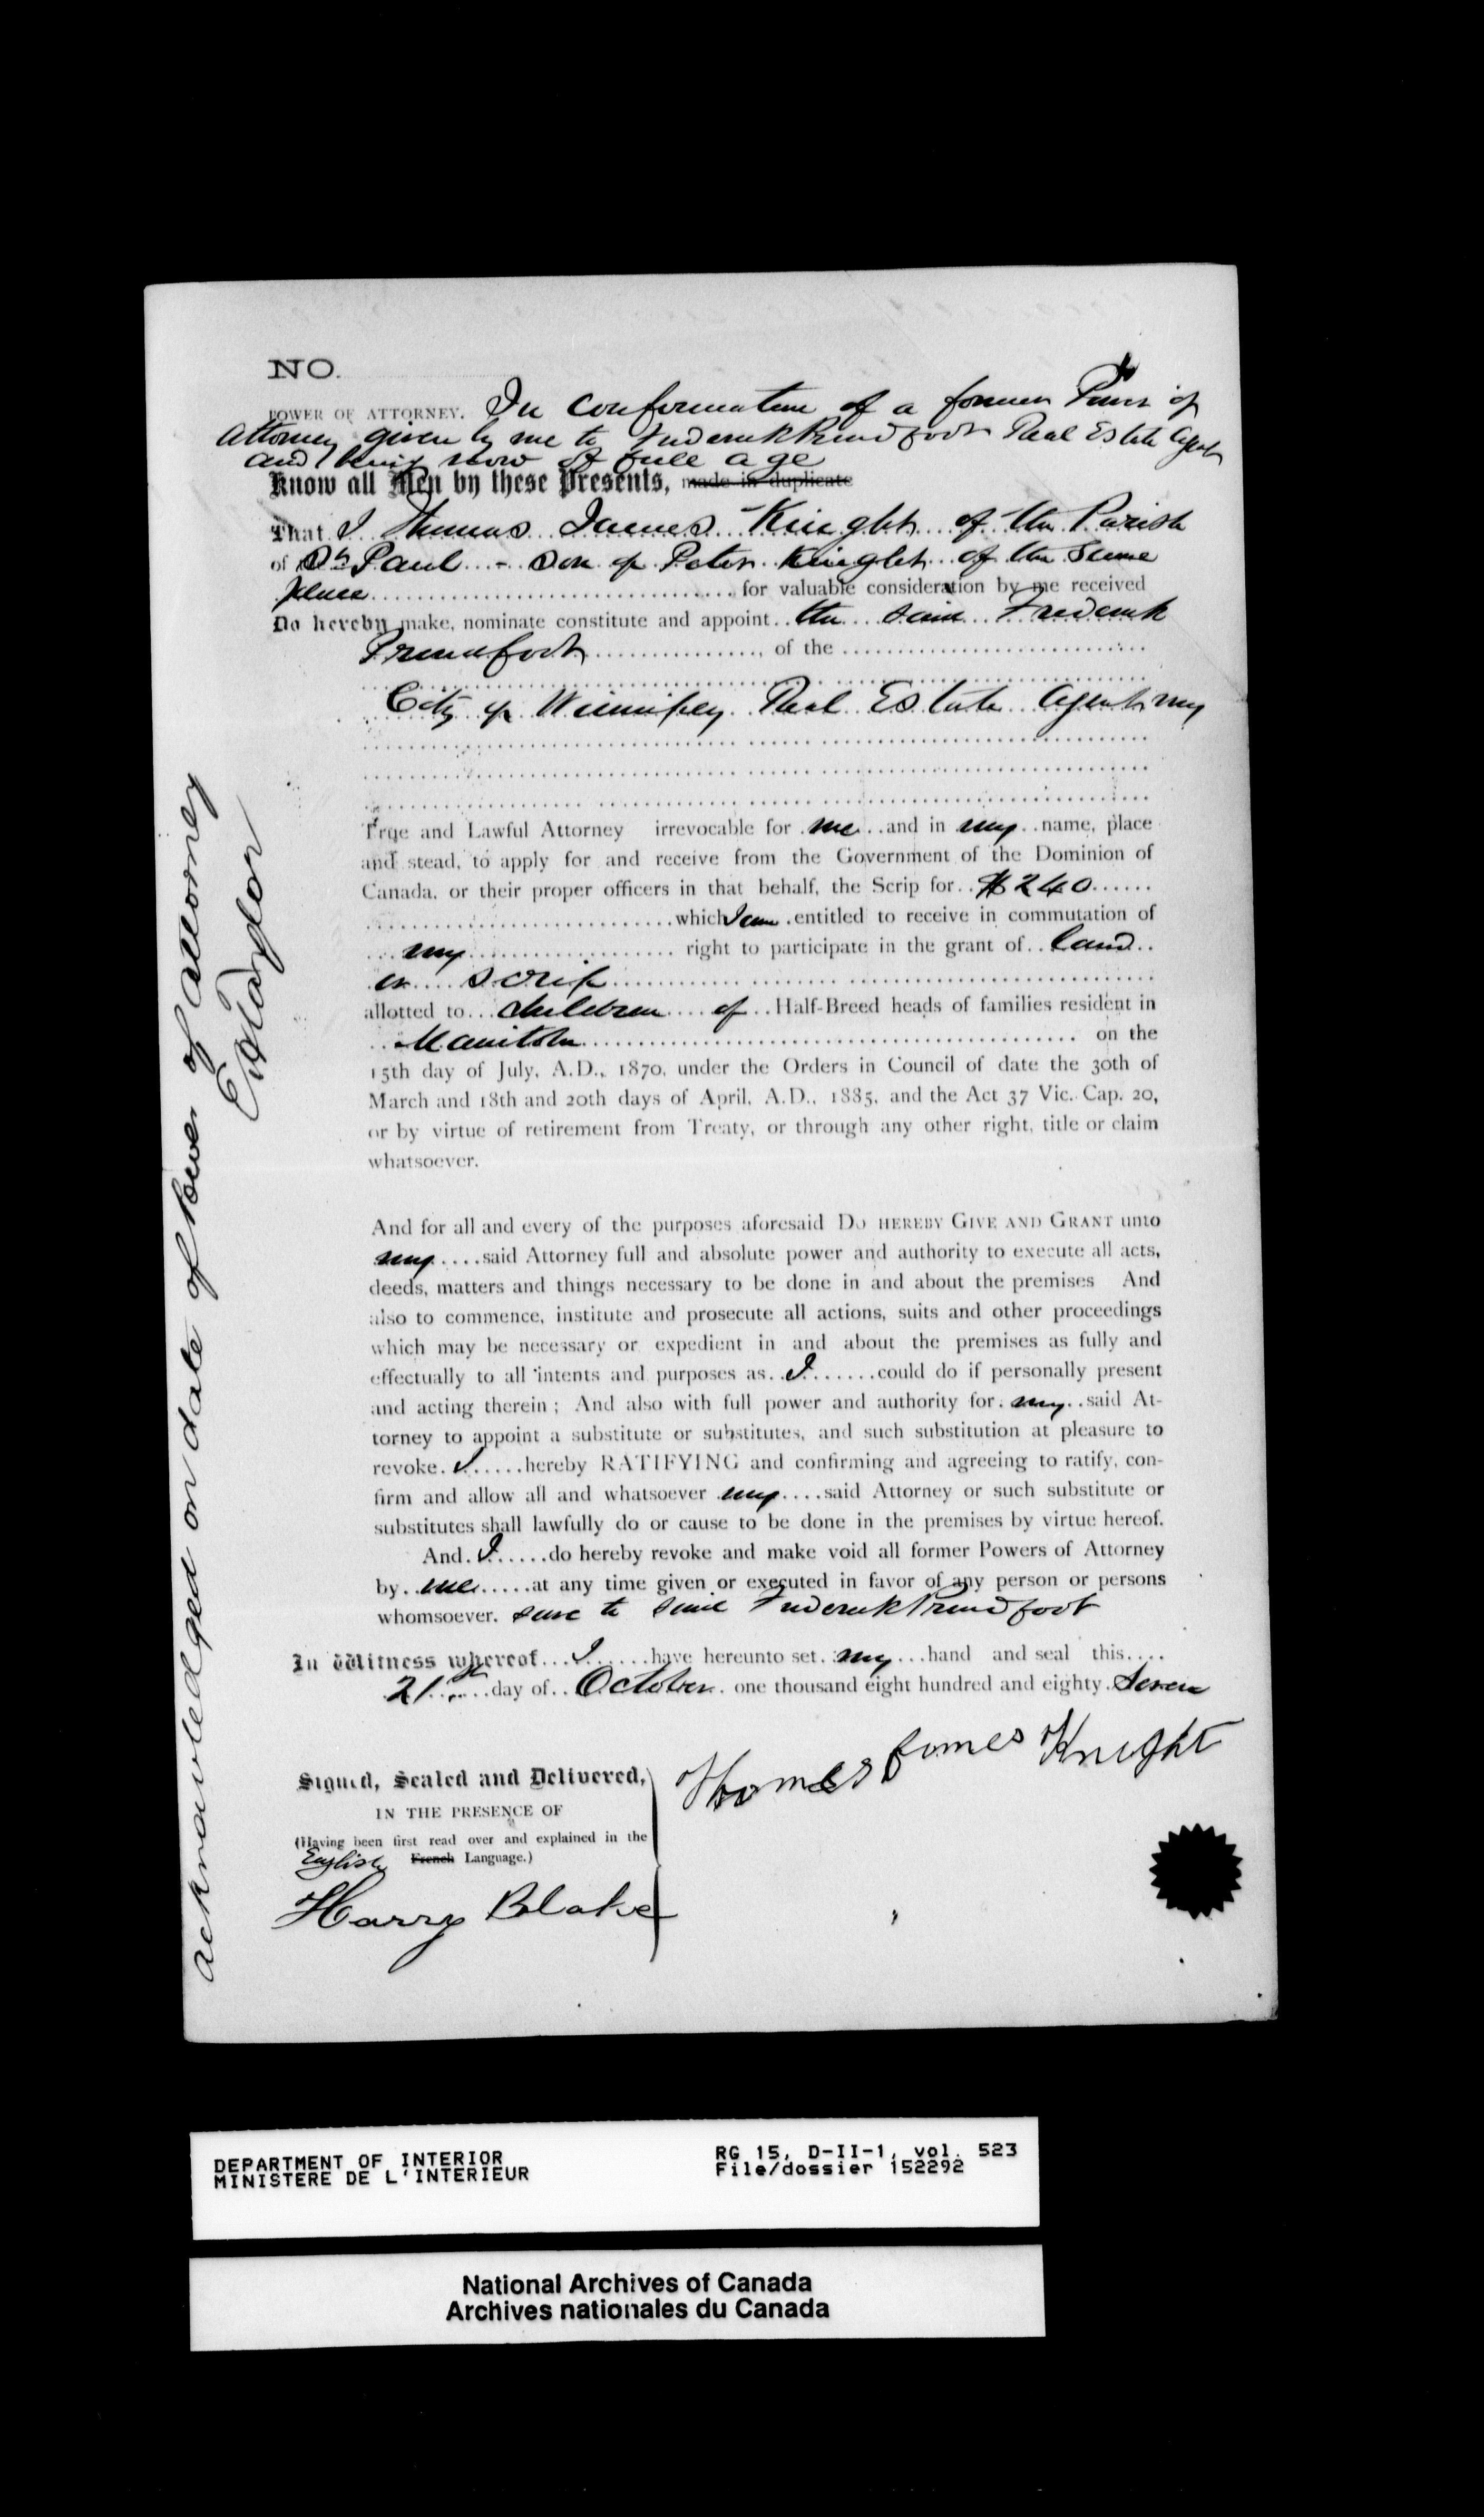 NO.
POWER OF ATTORNEY. In confirmation of a former Power of
Attorney given by me to Frederick Proudfoot Real Estate Agent
and I being now of full age
Know all Men by these Presents, made in duplicate
That I Thomas James Knight of the Parish
of St Paul - Son of Peter Knight of the same
place for valuable consideration by me received
Do hereby make, nominate constitute and appoint the said Frederick
Proudfoot of the
City of Winnipeg Real Estate Agent my
True and Lawful Attorney irrevocable for me and in my name, place
and stead, to apply for and receive from the Government of the Dominion of
Canada, or their proper officers in that behalf, the Scrip for $240
which I am entitled to receive in commutation of
my right to participate in the grant of land
or scrip
allotted to children of Half-Breed heads of families resident in
Manitoba on the
15th day of July, A.D., 1870, under the Orders in Council of date the 30th of
March and 18th and 20th days of April, A.D., 1885, and the Act 37 Vic. Cap. 20,
or by virtue of retirement from Treaty, or through any other right, title or claim
whatsoever.
And for all and every of the purposes aforesaid DO HEREBY GIVE AND GRANT unto
my said Attorney full and absolute power and authority to execute all acts,
deeds, matters and things necessary to be done in and about the premises And
also to commence, institute and prosecute all actions, suits and other proceedings
which may be necessary or expedient in and about the premises as fully and
effectually to all intents and purposes as I could do if personally present
and acting therein; And also with full power and authority for my said At-
torney to appoint a substitute or substitutes, and such substitution at pleasure to
revoke. I hereby RATIFYING and confirming and agreeing to ratify, con-
firm and allow all and whatsoever my said Attorney or such substitute or
substitutes shall lawfully do or cause to be done in the premises by virtue hereof.
And I do hereby revoke and make void all former Powers of Attorney
by me at any time given or executed in favor of any person or persons
whomsoever. save to said Frederick Proudfoot
In Witness whereof I have hereunto set my hand and seal this
21st day of October one thousand eight hundred and eighty Seven
Signed, Sealed and Delivered,
IN THE PRESENCE OF
(Having been first read over and explained in the
English French Language.)
Harry Blake
Thomas James Knight
acknowledged on date of Power of Attorney
DEPARTMENT OF INTERIOR
MINISTERE DE L'INTERIEUR
RG 15, D-II-1, vol. 523
File/dossier 152292
National Archives of Canada
Archives nationales du Canada